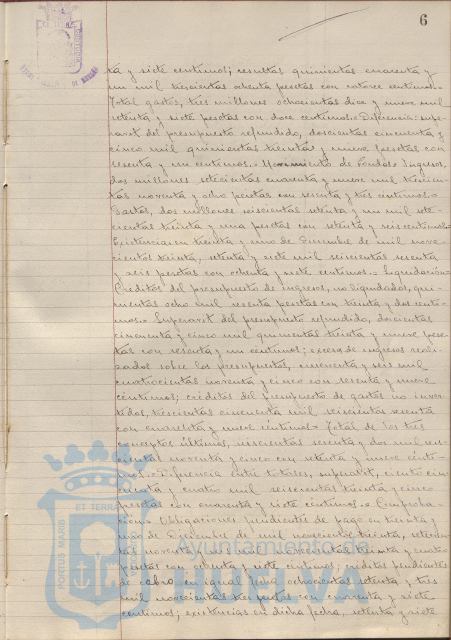 6
ta y siete centimos; resultas quinientas cuarenta y
un mil trescientas ochenta pesetas con catorce centimos.=
Total gastos, tres millones ochocientas diez y nueve mil
setenta y siete pesetas con doce centimos.= Diferencia: supe-
ravit del presupuesto refundido, doscientas cincuenta y
cinco mil quinientas treinta y nueve pesetas con
sesenta y un centimos.= Movimiento de fondos: Ingresos,
dos millones, setecientas cuarenta y nueve mil trescien-
tas noventa y ocho pesetas con sesenta y tres centimos.=
Gastos, dos millones seiscientas setenta y un mil sete-
cientas treinta y una pesetas con setenta y seis centimos.=
Existencia en treinta y uno de Diciembre de mil nove-
cientos treinta, setenta y siete mil seiscientas sesenta
y seis pesetas con ochenta y siete centimos.= Liquidación=
Créditos del presupuesto de ingresos, no liquidados, qui-
nientas ocho mil sesenta pesetas con treinta y dos centi-
mos.= Superavit del presupuesto refundido, doscientas
cincuenta y cinco mil quinientas treinta y nueve pese-
tas con sesenta y un centimos; exceso de ingresos reali-
zados sobre los presupuestos, cincuenta y seis mil
cuatrocientas noventa y cinco con sesenta y nueve
centimos; créditos del presupuesto de gastos no inver-
tidos, trescientas cincuenta mil seiscientas sesenta
con cuarenta y nueve centimos.= Total de los tres
conceptos últimos, seiscientas sesenta y dos mil seis-
cientas noventa y cinco con setenta y nueve centi-
mos.= Diferencia entre totales, superavit, ciento cin-
cuenta y cuatro mil seiscientas treinta y cinco
pesetas con cuarenta y siete centimos.= Comproba-
ción.= Obligaciones pendientes de pago en treinta y
uno de Diciembre de mil novecientos treinta, setecien-
tas noventa y mil novecientas treinta y cuatro
pesetas con ochenta y siete centimos; créditos pendientes
de cobro en igual fecha ochocientas setenta y tres
mil novecientas tres pesetas con cuarenta y siete
centimos; existencias en dicha fecha, setenta y siete
PORTUS MARIS
ET TERRAE
Ayuntamiento de